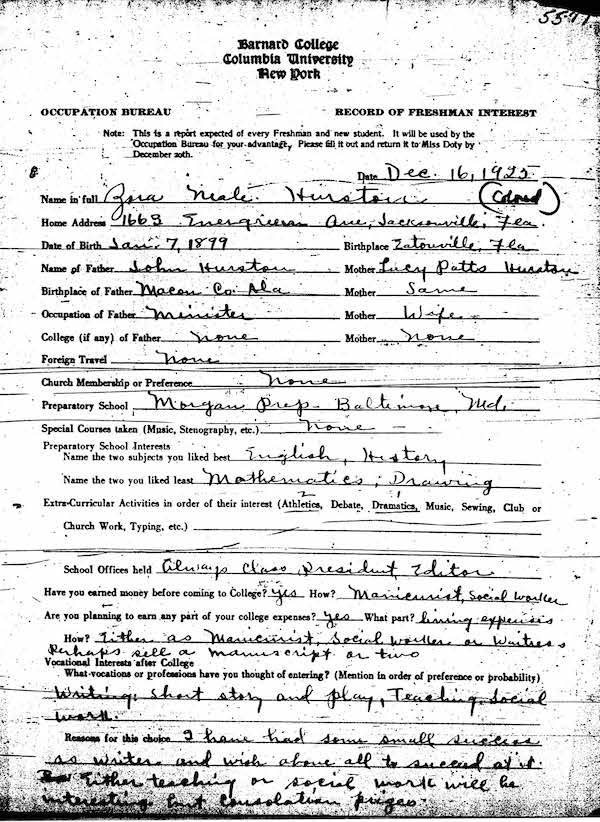 5517
Barnard College
Columbia University
New York
OCCUPATION BUREAU RECORD OF FRESHMAN INTEREST
Note: This is a report expected of every Freshman and new student. It will be used by the
Occupation Bureau for your advantage. Please fill it out and return it to Miss Doty by
December 20th.
Date Dec. 16, 1925
Name in full Zora Neale Hurston (Colored)
Home Address 1663 Evergreen Ave, Jacksonville, Fla.
Date of Birth Jan. 7, 1899 Birthplace Eatonville, Fla
Name of Father John Hurston Mother Lucy Potts Hurston
Birthplace of Father Macon Co. Ala Mother Same
Occupation of Father Minister Mother Wife
College (if any) of Father None Mother None
Foreign Travel None
Church Membership or Preference None
Preparatory School Morgan Prep. Baltimore, Md.
Special Courses taken (Music, Stenography, etc.) None
Preparatory School Interests
Name the two subjects you liked best English, History
Name the two you liked least Mathematics, Drawing
Extra-Curricular Activities in order of their interest (Athletics, 2 Debate, Dramatics, Music, Sewing, Club or
Church Work, Typing, etc.)
School Offices held Always Class President, Editor
Have you earned money before coming to College? Yes How? Manicurist, Social worker
Are you planning to earn any part of your college expenses? Yes What part? living expenses
How? Either as Manicurist, Social worker or Waitress
Perhaps sell a manuscript or two
Vocational Interests after College
What vocations or professions have you thought of entering? (Mention in order of preference or probability)
Writing; short story and play, Teaching, Social
work.
Reasons for this choice I have had some small success
as writer and wish above all to succeed at it.
Either teaching or social work will be
interesting but consolation prizes.